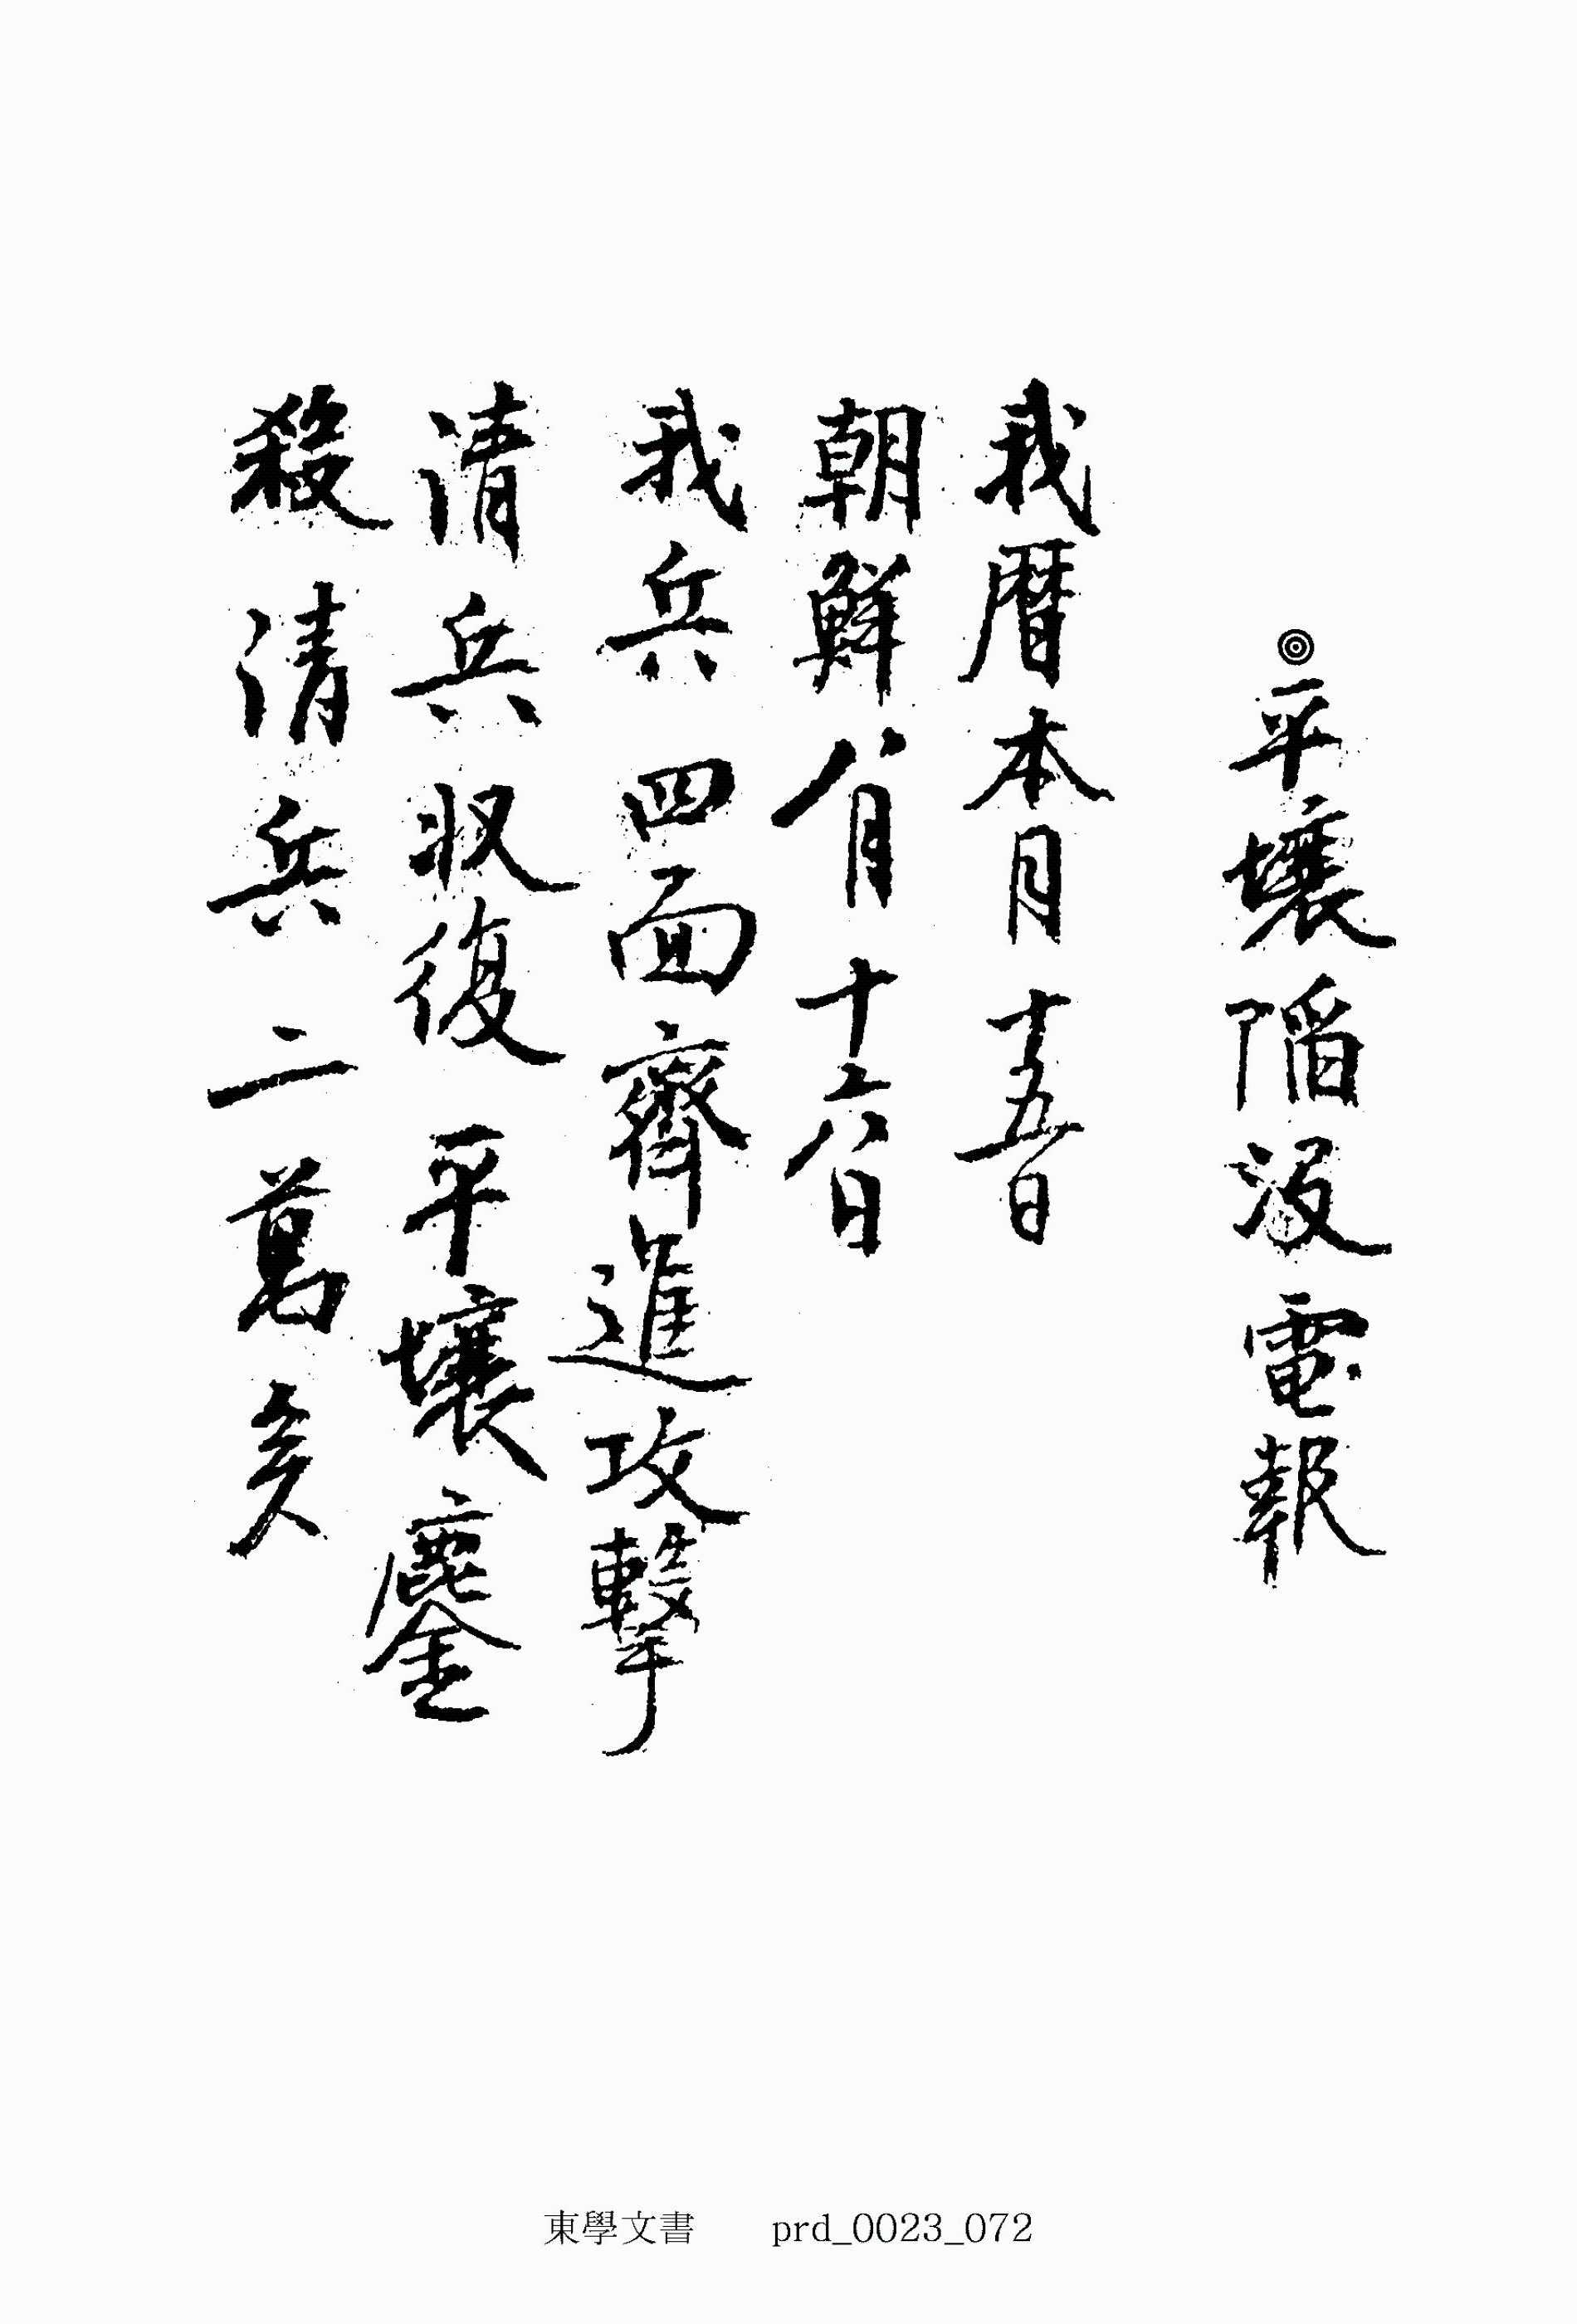 ◎平壤陷沒電報
我曆本月十五日
朝鮮八月十六日
我兵四面齊進攻擊
清兵収復平壤鏖
殺清兵二萬矣
東學文書 prd_0023_072